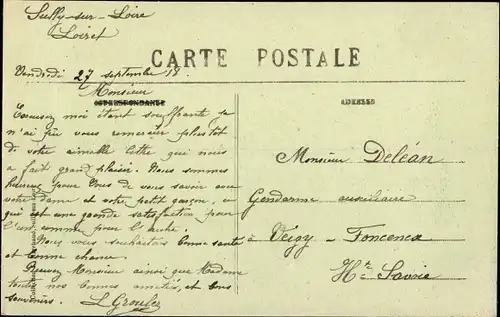 Sully-sur-Loire
Loiret
CARTE POSTALE
Vendredi 27 septembre 18.
Monsieur
CORRESPONDANCE
ADRESSE
Excusez moi étant souffrante je
n'ai pu vous remercier plus tôt
de votre aimable lettre qui nous
a fait grand plaisir. Nous sommes
heureux pour vous de vous savoir avec
votre Dame et votre petit garçon, ce
qui est une grande satisfaction pour
l'un comme pour l'autre.
Nous vous souhaitons bonne santé
et bonne chance.
Recevez Monsieur ainsi que Madame
toutes nos bonnes amitiés, et bons
souvenirs.
Monsieur Deléan
Gendarme auxiliaire
à Veigy-Foncenex
Hte Savoie